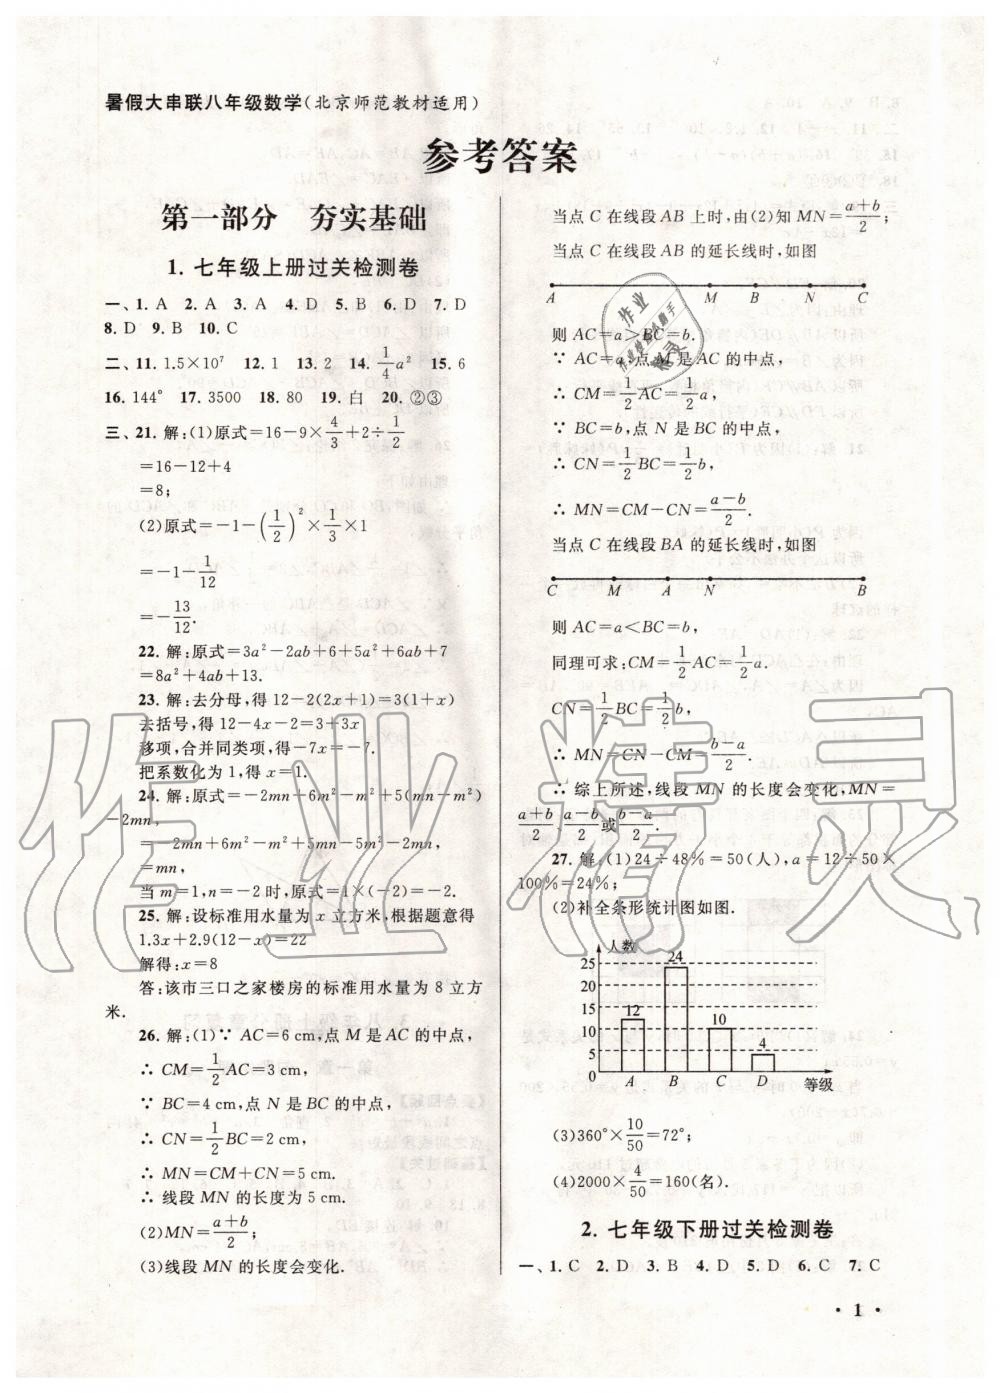 暑假大串联八年级数学(北京师范教材适用)
参考答案
第一部分　夯实基础
1. 七年级上册过关检测卷
一、1. A　2. A　3. A　4. D　5. B　6. D　7. D
8. D　9. B　10. C
二、11. 1.5×10⁷　12. 1　13. 2　14. 1/4 a²　15. 6
16. 144°　17. 3500　18. 80　19. 白　20. ②③
三、21. 解:(1)原式=16-9×4/3+2÷1/2
=16-12+4
=8;
(2)原式=-1-(1/2)²×1/3×1
=-1-1/12
=-13/12.
22. 解:原式=3a²-2ab+6+5a²+6ab+7
=8a²+4ab+13.
23. 解:去分母,得12-2(2x+1)=3(1+x)
去括号,得12-4x-2=3+3x
移项,合并同类项,得-7x=-7.
把系数化为1,得x=1.
24. 解:原式=-2mn+6m²-m²+5(mn-m²)
-2mn,
=-2mn+6m²-m²+5mn-5m²-2mn,
=mn,
当m=1,n=-2时,原式=1×(-2)=-2.
25. 解:设标准用水量为x立方米,根据题意得
1.3x+2.9(12-x)=22
解得:x=8
答:该市三口之家楼房的标准用水量为8立方
米.
26. 解:(1)∵ AC=6 cm,点M是AC的中点,
∴ CM=1/2AC=3 cm,
∵ BC=4 cm,点N是BC的中点,
∴ CN=1/2BC=2 cm,
∴ MN=CM+CN=5 cm,
∴ 线段MN的长度为5 cm.
(2)MN=(a+b)/2;
(3)线段MN的长度会变化.
当点C在线段AB上时,由(2)知MN=(a+b)/2;
当点C在线段AB的延长线时,如图
A　M　B　N　C
则AC=a>BC=b.
∵ AC=a,点M是AC的中点,
∴ CM=1/2AC=1/2a,
∵ BC=b,点N是BC的中点,
∴ CN=1/2BC=1/2b,
∴ MN=CM-CN=(a-b)/2.
当点C在线段BA的延长线时,如图
C　M　A　N　B
则AC=a<BC=b,
同理可求:CM=1/2AC=1/2a.
CN=1/2BC=1/2b,
∴ MN=CN-CM=(b-a)/2
∴ 综上所述,线段MN的长度会变化,MN=
(a+b)/2,(a-b)/2或(b-a)/2.
27. 解:(1)24÷48%=50(人),a=12÷50×
100%=24%;
(2)补全条形统计图如图.
人数
25
20
15
10
5
0
12
24
10
4
A　B　C　D　等级
(3)360°×10/50=72°;
(4)2000×4/50=160(名).
2. 七年级下册过关检测卷
一、1. C　2. D　3. B　4. D　5. D　6. C　7. C
· 1 ·
作业精灵